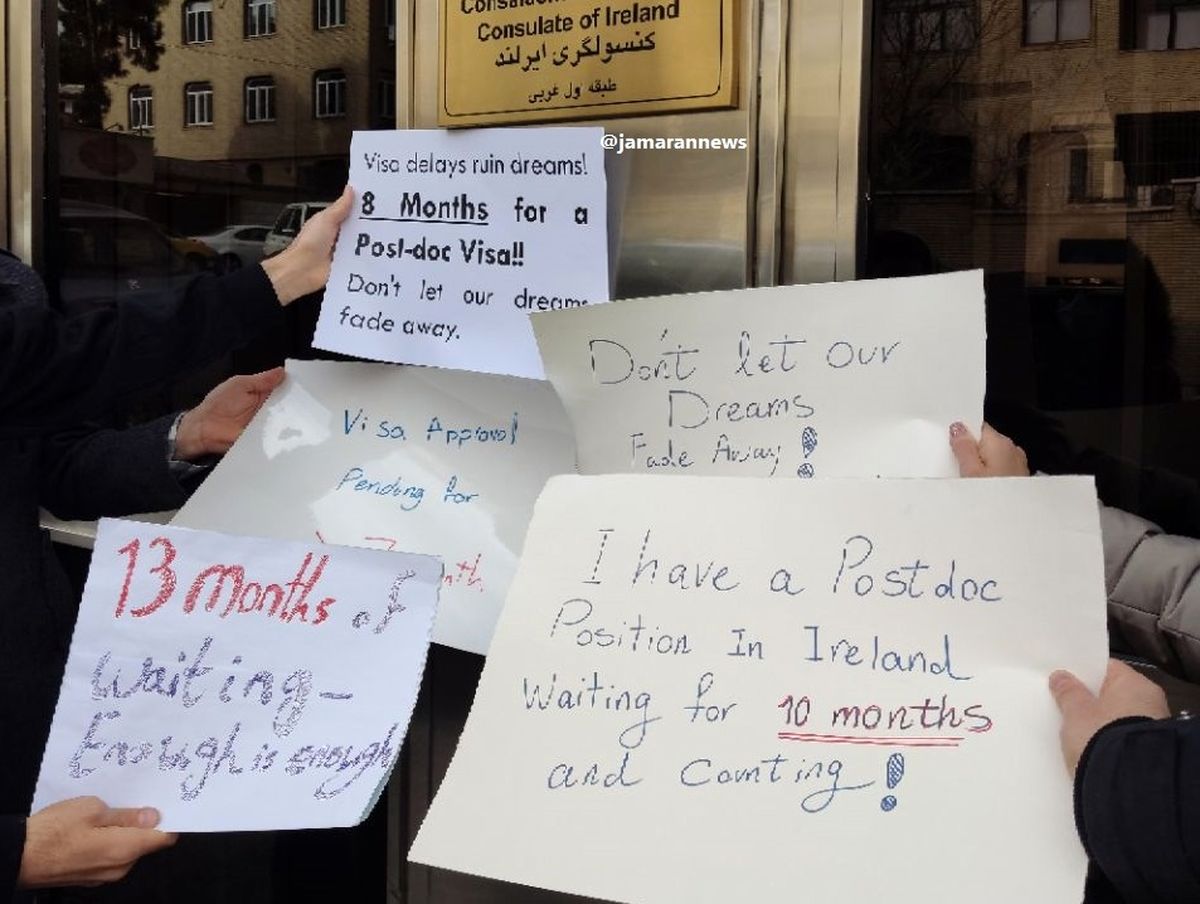 Consulate of Ireland
کنسولگری ایرلند
طبقه اول غربی
@jamarannews
Visa delays ruin dreams!
8 Months for a
Post-doc Visa!!
Don't let our dreams
fade away.
Don't let our
Dreams
Fade Away!
Visa Approval
Pending for
13 months of
waiting-
Enough is enough
I have a Postdoc
Position In Ireland
Waiting for 10 months
and counting!